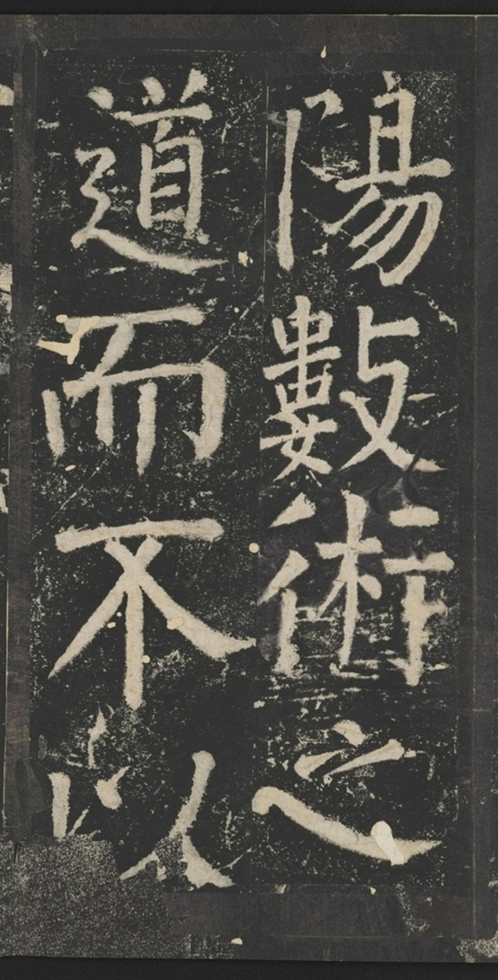 陽數術之
道而不以